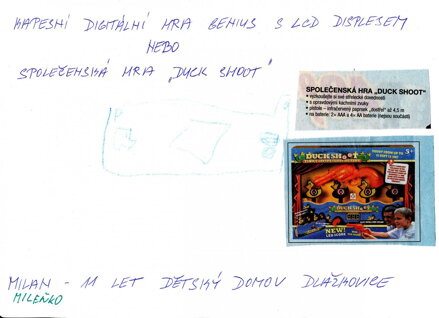 KAPESNÍ DIGITÁLNÍ HRA GENIUS S LCD DISPLESEM
NEBO
SPOLEČENSKÁ HRA „DUCK SHOOT"
SPOLEČENSKÁ HRA „DUCK SHOOT"
• vyzkoušejte si své střelecké dovednosti
• s opravdovými kachními zvuky
• pistole - infračervený paprsek „dostřel" až 4,5 m
• na baterie: 2× AAA a 4× AA baterie (nejsou součástí)
5+
DUCK SHOOT
NEW!
MILAN - 11 LET DĚTSKÝ DOMOV DLAŽKOVICE
MILEŇKO